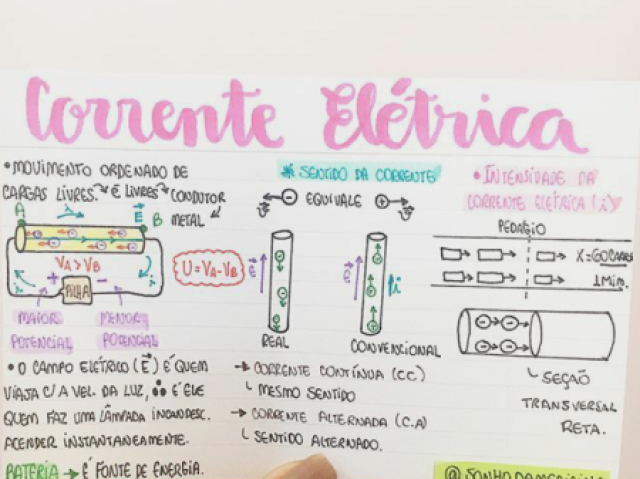 Corrente Elétrica
• MOVIMENTO ORDENADO DE
CARGAS LIVRES. ↷ é LIVRES ↷ CONDUTOR
METAL
A
E
B
VA > VB
i
+ -
i
PILHA
MAIOR
POTENCIAL
MENOR
POTENCIAL
U = VA - VB
• O CAMPO ELÉTRICO (E) É QUEM
VIAJA C/ A VEL. DA LUZ, ∴ É ELE
QUEM FAZ UMA LÂMPADA INCANDESC.
ACENDER INSTANTANEAMENTE.
BATERIA → É FONTE DE ENERGIA.
* SENTIDO DA CORRENTE
EQUIVALE
E
REAL
E
i
CONVENCIONAL
→ CORRENTE CONTÍNUA (CC)
MESMO SENTIDO
→ CORRENTE ALTERNADA (C.A)
SENTIDO ALTERNADO.
• INTENSIDADE DA
CORRENTE ELÉTRICA (i)
PEDÁGIO
1 MIN.
SEÇÃO
TRANSVERSAL
RETA.